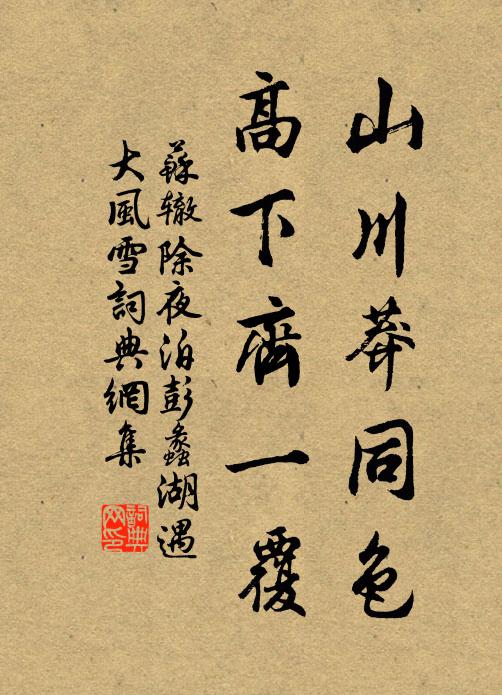 山川莽同色
高下齊一覆
蘇轍除夜泊彭蠡湖遇
大風雪詞典網集
詞典
网印